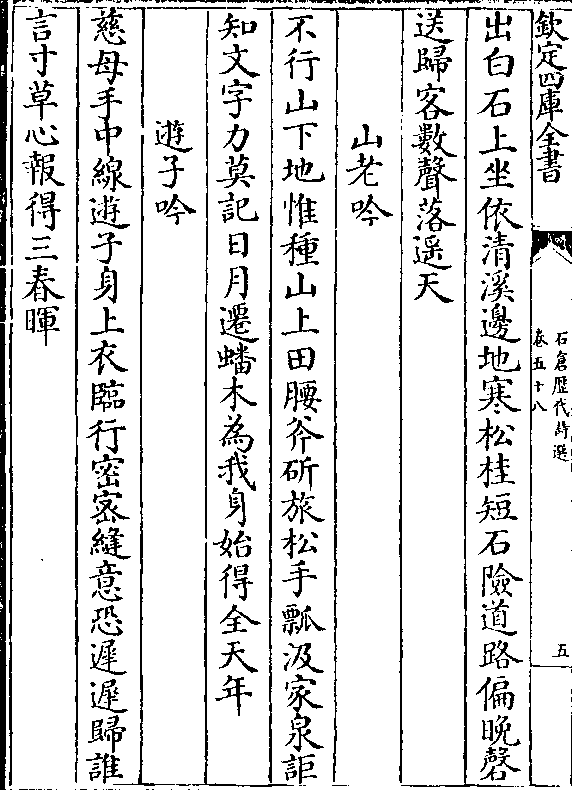 欽定四庫全書
石倉歷代詩選
卷五十八
五
出白石上坐依清溪邊地寒松桂短石險道路偏晚磬
送歸客數聲落遥天
山老吟
不行山下地惟種山上田腰斧斫旅松手瓢汲家泉詎
知文字力莫記日月遷蟠木為我身始得全天年
遊子吟
慈母手中線遊子身上衣臨行密密縫意恐遲遲歸誰
言寸草心報得三春暉